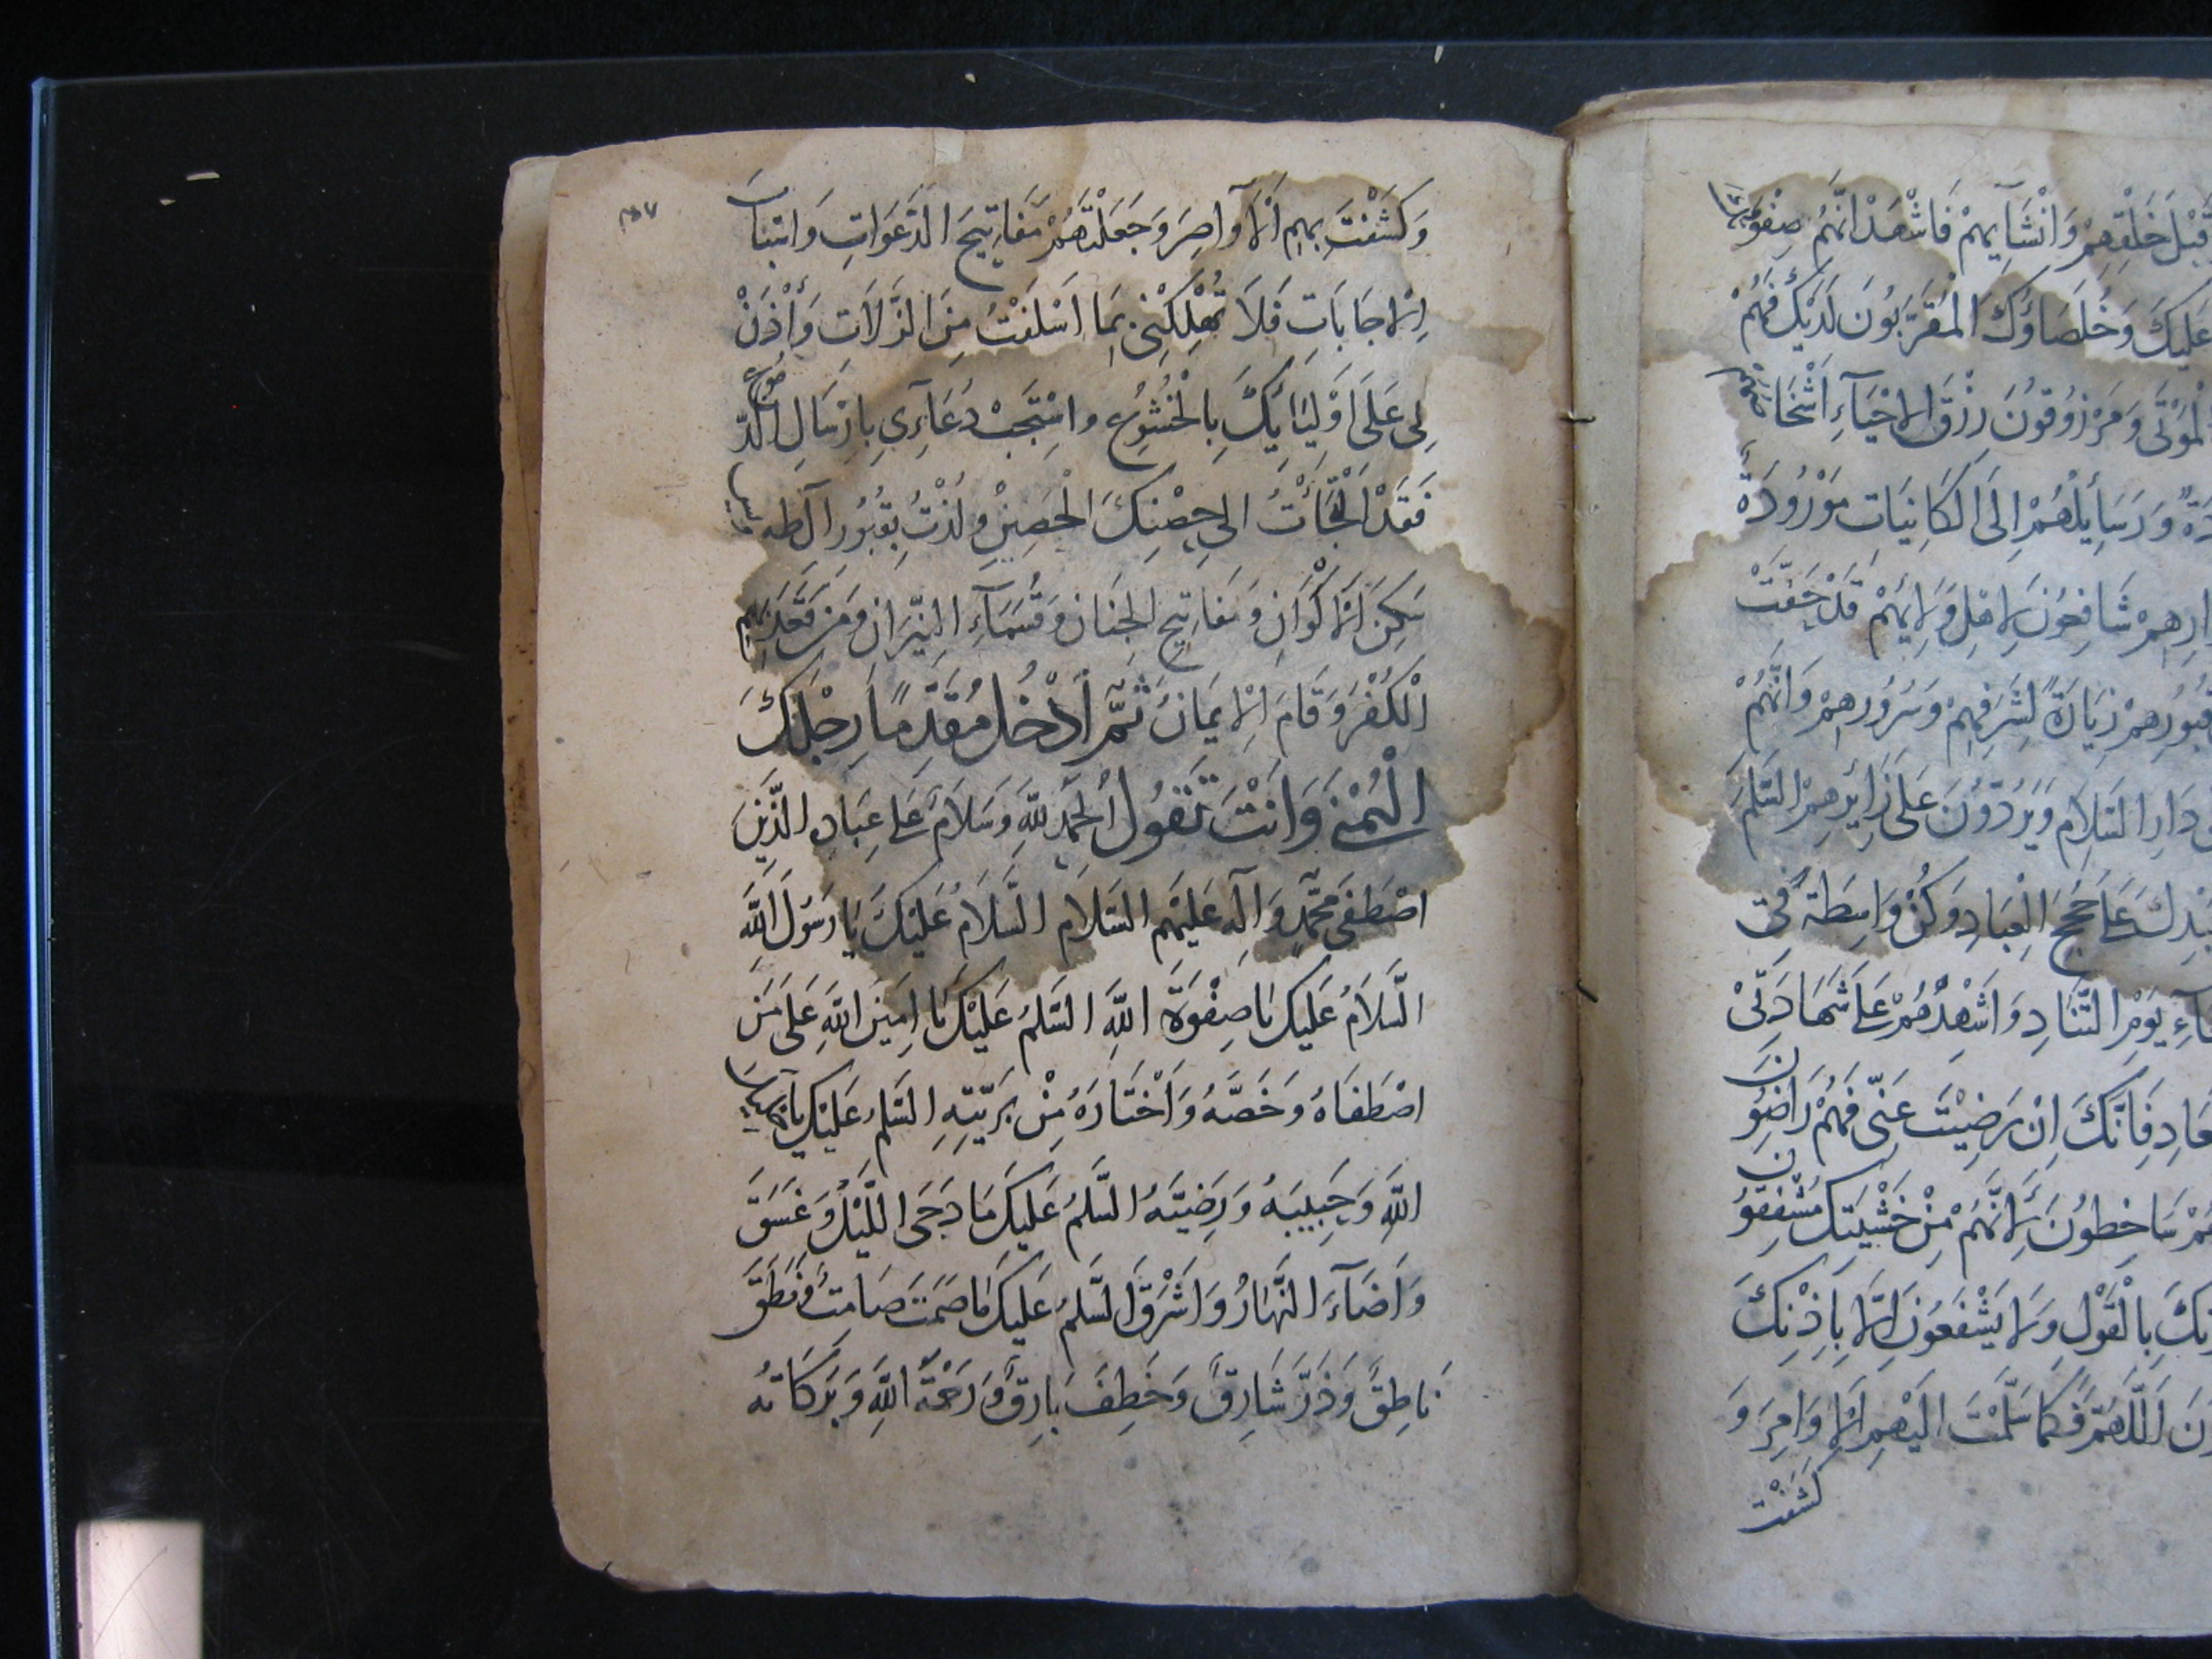 قبل خلقهم وانشايهم فاشهد انهم صفوتك
عليك وخلصاؤك المقربون لديك فهم
لموتى ومرزوقون رزق الاحياء اشخاصهم
ورسائلهم الى الكاينات موزودة
شافعون لاهل ولايهم قد حقت
قبورهم زيارة لشرفهم وسرورهم وانهم
دار السلام ويردون على زايرهم السلم
على حجج العباد وكن واسطة في
يوم التناد واشهدهم على شهادتي
فانك ان رضيت عني فهم راضون
ساخطون لانهم من خشيتك مشفقون
بالقول ولا يشفعون الا باذنك
اللهم فكما سلمت اليهم الاوامر و
كشفت
٢٥٧
وَكَشَفْتَ بِهِمِ الْاَوَاصِرَ وَجَعَلْتَهُمْ مَفَاتِيحَ الدَّعَوَاتِ وَاسْبَابَ
الْاِجَابَاتِ فَلَا تُهْلِكْنِي بِمَا اَسْلَفْتُ مِنَ الزَّلَاتِ وَأْذَنْ
لِي عَلَى اَوْلِيَائِكَ بِالْخُشُوعِ واسْتَجِبْ دُعَآءِي بِاِرْسَالِ الدّموع
فَقَدْ اَلْتَجَأْتُ الى حِصْنِكَ الْحَصِينْ ولُذْتُ بِقُبُورِ آلِ طه
الْاَكْوَانِ وَمَفَاتِيحِ الْجَنَانِ وَقُسَمَآءِ النِّيرَانِ وَمَن قَعَدَ بهم
الْكُفْرَ وَقَامَ الْاِيمَانُ ثُمَّ اَدْخُلْ مُقَدِّمًا رِجْلَكَ
الْيُمْنى وَاَنْتَ تَقُولُ اَلحَمْدُ لِلَّهِ وَسَلَامٌ عَلى عِبَادِهِ الَّذِينَ
اصْطَفَى مُحَمَّدٍ وَآلِهِ عَلَيْهِم السَّلَامِ السَّلَامُ عَلَيْكَ يَا رَسُولَ اللَّهِ
السَّلَامُ عَلَيكَ يَا صِفْوَةَ اللَّهِ السَّلمُ عَلَيْكَ يَا اَمِينَ اللَّهِ عَلَى مَنِ
اصْطَفَاهُ وَخَصَّهُ وَاَخْتَارَهُ مِنْ بَرِيَّتِهِ السَّلمُ عَلَيْكَ يَا
اللَّهِ وَحَبِيبَهُ وَرَضِيَّهُ السَّلمُ عَلَيكَ مَا دَجَى اللَّيْلُ وَغَسَقَ
وَاَضَآءَ النَّهَارُ وَاَشْرَقَ السَّلمُ عَلَيكَ مَا صَمَتَ صَامِتٌ وَنَطَقَ
نَاطِقٌ وَذَرَّ شَارِقٌ وَخَطِفَ بَارِقٌ وَرَحْمَةُ اللَّهِ وَبَرَكَاتهُ